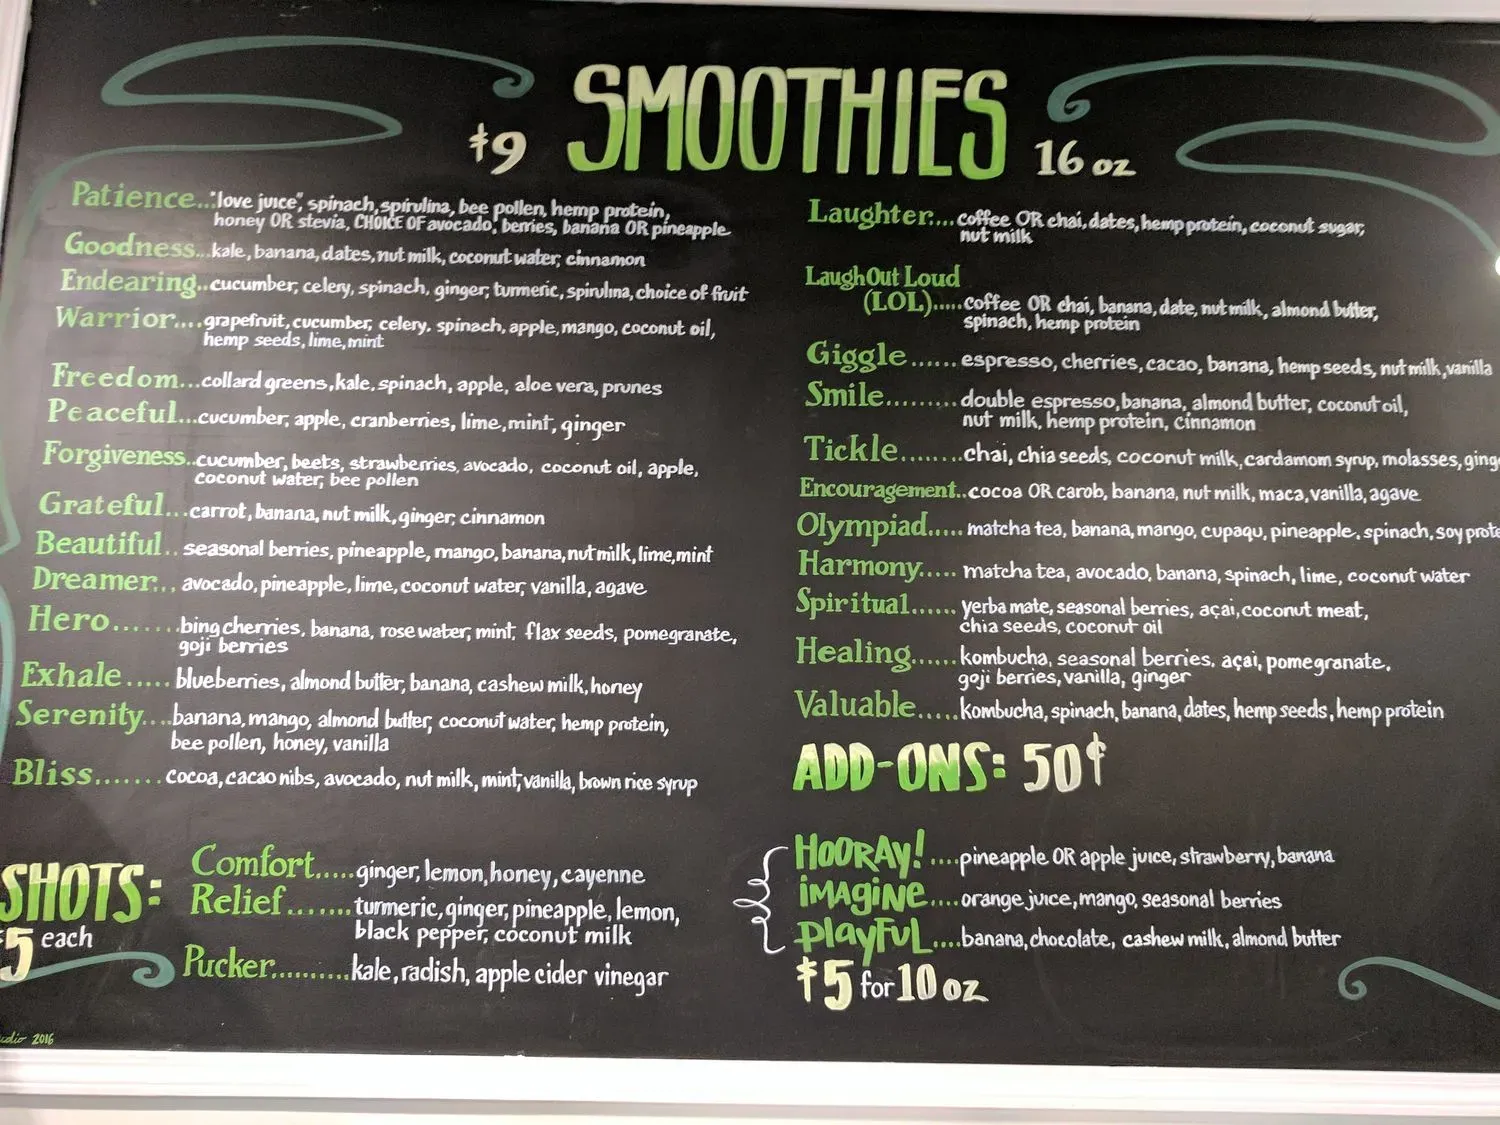 SMOOTHIES
$9
16 oz
Patience..."love juice", spinach, spirulina, bee pollen, hemp protein,
honey OR stevia, CHOICE OF avocado, berries, banana OR pineapple
Goodness...kale, banana, dates, nut milk, coconut water, cinnamon
Endearing..cucumber, celery, spinach, ginger, turmeric, spirulina, choice of fruit
Warrior....grapefruit, cucumber, celery, spinach, apple, mango, coconut oil,
hemp seeds, lime, mint
Freedom...collard greens, kale, spinach, apple, aloe vera, prunes
Peaceful...cucumber, apple, cranberries, lime, mint, ginger
Forgiveness..cucumber, beets, strawberries, avocado, coconut oil, apple,
coconut water, bee pollen
Grateful...carrot, banana, nut milk, ginger, cinnamon
Beautiful.. seasonal berries, pineapple, mango, banana, nut milk, lime, mint
Dreamer... avocado, pineapple, lime, coconut water, vanilla, agave
Hero.......bing cherries, banana, rose water, mint, flax seeds, pomegranate,
goji berries
Exhale..... blueberries, almond butter, banana, cashew milk, honey
Serenity....banana, mango, almond butter, coconut water, hemp protein,
bee pollen, honey, vanilla
Bliss.......cocoa, cacao nibs, avocado, nut milk, mint, vanilla, brown rice syrup
SHOTS:
$5 each
Comfort.....ginger, lemon, honey, cayenne
Relief.......turmeric, ginger, pineapple, lemon,
black pepper, coconut milk
Pucker..........kale, radish, apple cider vinegar
2016
Laughter....coffee OR chai, dates, hemp protein, coconut sugar,
nut milk
Laugh Out Loud
(LOL).....coffee OR chai, banana, date, nut milk, almond butter,
spinach, hemp protein
Giggle......espresso, cherries, cacao, banana, hemp seeds, nut milk, vanilla
Smile.........double espresso, banana, almond butter, coconut oil,
nut milk, hemp protein, cinnamon
Tickle........chai, chia seeds, coconut milk, cardamom syrup, molasses, ging
Encouragement..cocoa OR carob, banana, nut milk, maca, vanilla, agave
Olympiad..... matcha tea, banana, mango, cupaqu, pineapple, spinach, soy prote
Harmony..... matcha tea, avocado, banana, spinach, lime, coconut water
Spiritual...... yerba mate, seasonal berries, açai, coconut meat,
chia seeds, coconut oil
Healing......kombucha, seasonal berries, açai, pomegranate,
goji berries, vanilla, ginger
Valuable.....kombucha, spinach, banana, dates, hemp seeds, hemp protein
ADD-ONS: 50¢
HOORAY!....pineapple OR apple juice, strawberry, banana
iMAGiNe....orange juice, mango, seasonal berries
PlAyFuL....banana, chocolate, cashew milk, almond butter
$5 for 10 oz